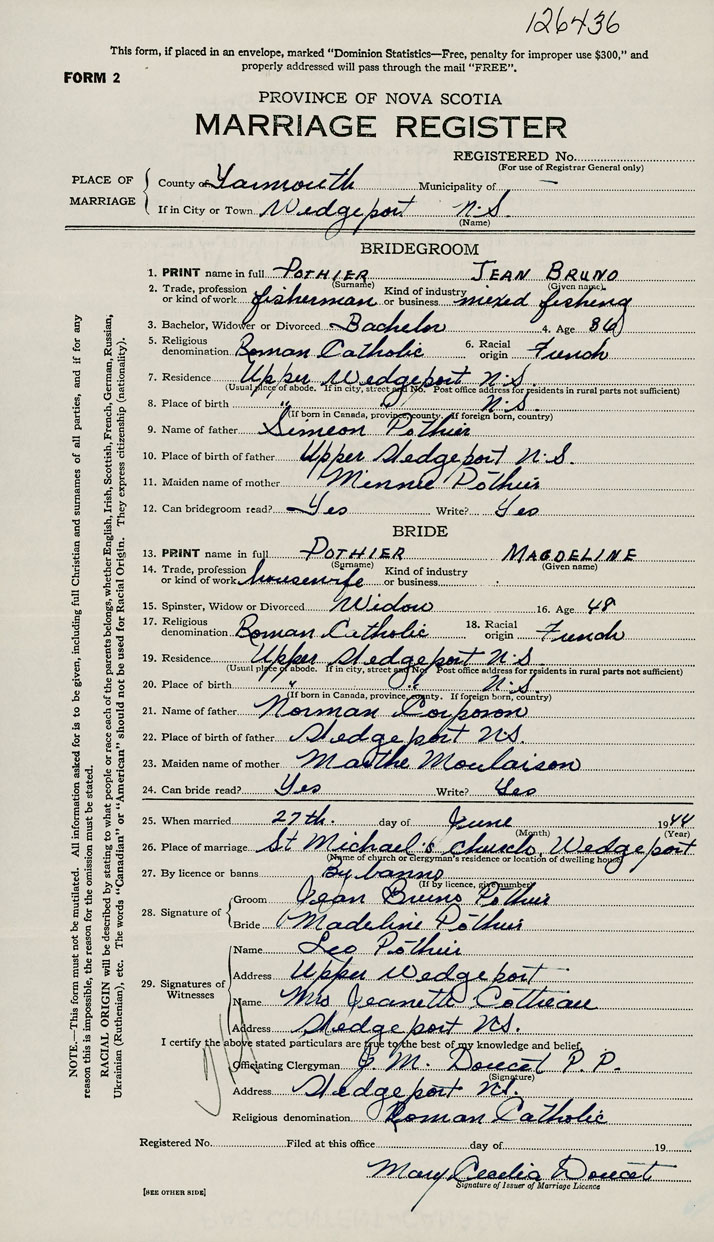 126436
This form, if placed in an envelope, marked "Dominion Statistics—Free, penalty for improper use $300," and
properly addressed will pass through the mail "FREE".
FORM 2
PROVINCE OF NOVA SCOTIA
MARRIAGE REGISTER
REGISTERED No.
(For use of Registrar General only)
PLACE OF MARRIAGE
County of Yarmouth Municipality of —
If in City or Town Wedgeport N.S.
(Name)
BRIDEGROOM
1. PRINT name in full POTHIER JEAN BRUNO
(Surname) (Given name)
2. Trade, profession or kind of work fisherman Kind of industry or business mixed fishing
3. Bachelor, Widower or Divorced Bachelor 4. Age
5. Religious denomination Roman Catholic 6. Racial origin French
7. Residence Upper Wedgeport N.S.
(Usual place of abode. If in city, street and No. Post office address for residents in rural parts not sufficient)
8. Place of birth " " N.S.
(If born in Canada, province, county. If foreign born, country)
9. Name of father Simeon Pothier
10. Place of birth of father Upper Wedgeport N.S.
11. Maiden name of mother Minnie Pothier
12. Can bridegroom read? Yes Write? Yes
BRIDE
13. PRINT name in full POTHIER MAGDELINE
(Surname) (Given name)
14. Trade, profession or kind of work housewife Kind of industry or business
15. Spinster, Widow or Divorced Widow 16. Age 48
17. Religious denomination Roman Catholic 18. Racial origin French
19. Residence Upper Wedgeport N.S.
(Usual place of abode. If in city, street and No. Post office address for residents in rural parts not sufficient)
20. Place of birth " " N.S.
(If born in Canada, province, county. If foreign born, country)
21. Name of father Norman Corporon
22. Place of birth of father Wedgeport N.S.
23. Maiden name of mother Marthe Moulaison
24. Can bride read? Yes Write? Yes
25. When married 27th. day of June 1944
(Month) (Year)
26. Place of marriage St Michael's Church, Wedgeport
(Name of church or clergyman's residence or location of dwelling house)
27. By licence or banns By banns
(If by licence, give number)
28. Signature of
Groom Jean Bruno Pothier
Bride Madeline Pothier
29. Signatures of Witnesses
Name Leo Pothier
Address Upper Wedgeport
Name Mrs Jeanette Cottreau
Address Wedgeport N.S.
I certify the above stated particulars are true to the best of my knowledge and belief.
Officiating Clergyman J. M. Doucet P. P.
(Signature)
Address Wedgeport N.S.
Religious denomination Roman Catholic
Registered No. Filed at this office day of 19
Mary Cecilia Doucet
Signature of Issuer of Marriage Licence
[SEE OTHER SIDE]
NOTE.—This form must not be mutilated. All information asked for is to be given, including full Christian and surnames of all parties, and if for any
reason this is impossible, the reason for the omission must be stated.
RACIAL ORIGIN will be described by stating to what people or race each of the parents belongs, whether English, Irish, Scottish, French, German, Russian,
Ukrainian (Ruthenian), etc. The words "Canadian" or "American" should not be used for Racial Origin. They express citizenship (nationality).